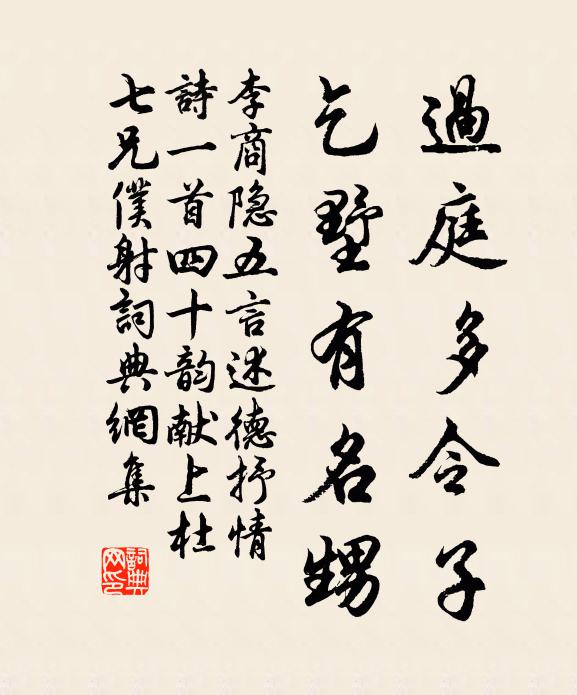 過庭多令子
乞墅有名甥
李商隐五言述德抒情
詩一首四十韵献上杜
七兄僕射詞典網集
詞典网印